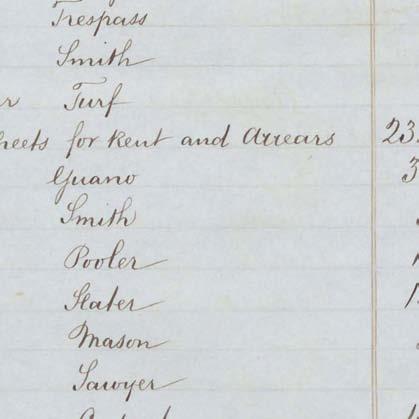 Trespass
Smith
r Turf
heets for Rent and Arrears 23
Guano 3
Smith
Pooler
Slater 1
Mason
Sawyer